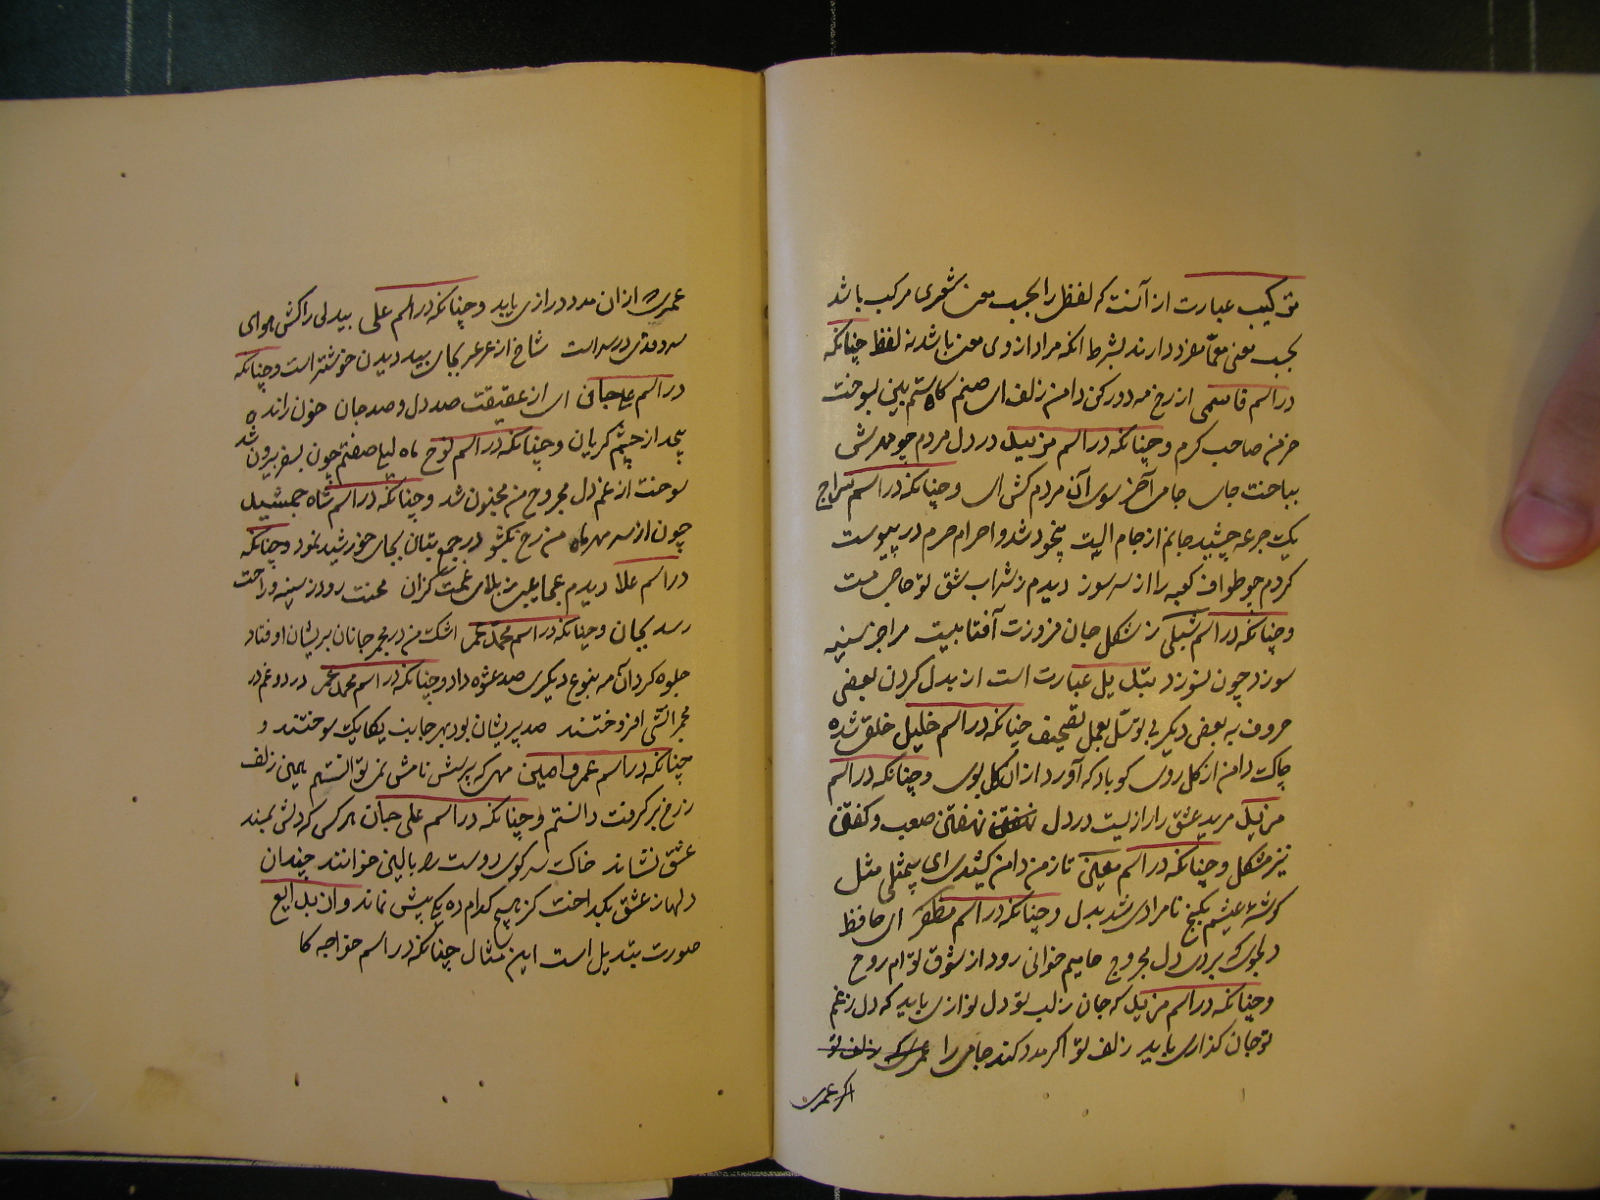 ترکیب عبارت از آنست که لفظ را بحسب معنی شعری مرکب باشد
بحسب معنی معمّا مفرد دارند بشرط انکه مراد از وی معنی باشد نه لفظ چنانکه
در اسم قاسمی از رخ مه دور کن دامن زلف ای صنم کاه ستم بین بسوخت
خرمن صاحب کرم وچنانکه در اسم مزیل در دل مردم چو مهرش
بباخت جای جامی آخر سوی آن مردم کشی ای وچنانکه در اسم سراج
یک جرعه چشید جانم از جام الست بیخود شد و احرام حرم در پیوست
کردم چو طواف کعبه را از سر سوز دیدم ز شراب شق تو حاجی مست
وچنانکه در اسم شبکی ز شکل جان فروزت آفتابیست مرا جز سینه
سوزد چون بسوزد تبدیل عبارت است از بدل کردن بعضی
حروف به بعضی دیگر بی توسّل بعمل تصحیف چنانکه در اسم خلیل خلق شده
چاکت دامن از کل روی کو باد که آورد ازان کل بوی وچنانکه در اسم
مزیل مرید عشق را رازیست در دل نهفتن صعب و کفتن
نیز مشکل وچنانکه در اسم معین تا ز من دامن کشیدی ای بیمثلی مثل
کوشهٔ عیشم بکنج نامرادی شد بدل وچنانکه در اسم مظفر ای حافظ
دلجوی که بردی دل مجروح حامیم خوانی رود از شوق توام روح
وچنانکه در اسم مزیل که جان ز لب تو دل نوازی یابد که دل ز غم
تو جان کذاری یابد زلف تو اکر مدد کند جامی را
اکر عمری
عمری ازان مدد درازی یابد وچنانکه در اسم علی بیدلی را کش هوای
سر و قدی در سر است شاخ از عرعر بجای بید دیدن خوشتر است وچنانکه
در اسم علی جانی ای از عقیقت صد دل و صد جان خون رانده
بیحد از چشم کریان وچنانکه در اسم نوح ماه لیلی صفتم چون بسفر بیرون شد
سوخت از غم دل مجروح من مجنون شد وچنانکه در اسم شاه جمشید
چون از سر مهر ماه من رخ بکشود در جمع بتان بجای خورشید نمود وچنانکه
در اسم علا دیدم عجایبی ز بلای غمت کران محنت رود ز سینه و راحت
رسد بجان وچنانکه در اسم محمد عمر اشکت من در بحر جانان پریشان اوفتاد
جلوه کرد آن مه بنوع دیکری صد عشوه داد وچنانکه در اسم محمد عمر در دو غم در
مجمر آتشی افروختند صد پریشان بود بهر جانب یکایک سوختند و
چنانکه در اسم عمر و امین مهی که پرسش نامش نمی توانستم یمین زلف
ز رخ برکرفت دانستم وچنانکه در اسم علی جان هر کس که دلش ببند
عشق نشاند خاک سر کوی دوست را بالین خوانند چندان
دلها ز عشق بکداخت کز هیچ کدام ده یکی بیش نماند و ان بدایع
صورت تبدیل است این مثال چنانکه در اسم خواجه کا